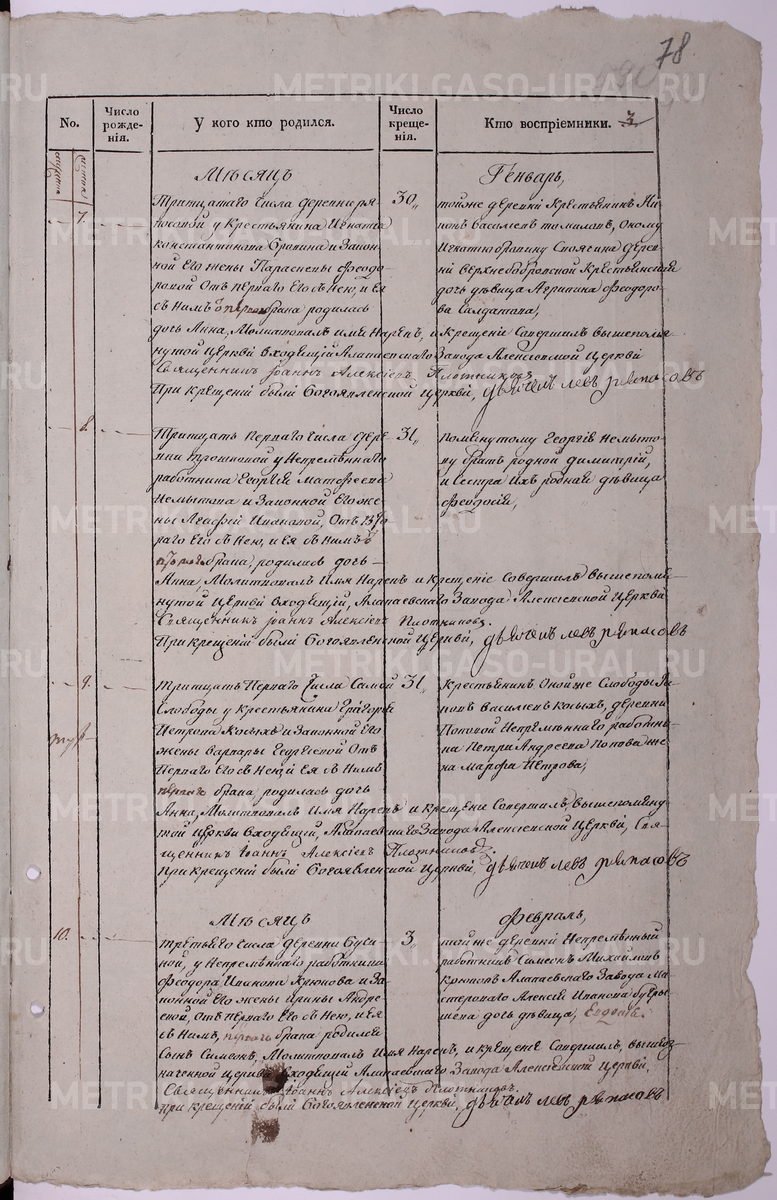 78
No.
Число рожденія.
У кого кто родился.
Число крещенія.
Кто воспріемники. 3
Мѣсяцъ
Генварь,
7.
Тритцатаго числа деревне Ря-
посовой у Крестьянина Игната
Константинова Бронина и Закон-
ной Его жены Параскевы Феодо-
ровой Отъ перваго Его с Нею, и Ея
съ Нимъ перваго брака родилась
дочь Анна, Молитвовалъ имя Нарекъ, и Крещеніе Совершилъ вышепомя-
нутой Церкви входящій Алапаевскаго Завода Алексіевской Церкви
Священникъ Іоаннъ Алексіевъ Плотниковъ
При крещеніи были Богоявленской Церкви, дьячекъ Левъ Ряпасовъ
30,,
тойже деревни Крестьянинъ
Василіевъ Оному
Игнатію Бронину деревни
Верхнебобровской Крестьянская
дочь дѣвица Агрипина Феодоро-
ва Салдатова,
8.
Тритцать перваго числа дере-
вни у Непремѣннаго
работника Георгія Матфеева
Немытова и Законной Его же-
ны Агафіи Ивановой, Отъ вто-
раго Его с Нею, и Ея с Нимъ
втораго брака, родилась дочь
Анна, Молитвовалъ Имя Нарекъ и крещеніе Совершилъ вышепомя-
нутой Церкви входящій, Алапаевскаго Завода Алексіевской Церкви
Священникъ Іоаннъ Алексіевъ Плотниковъ.
При крещеніи были Богоявленской Церкви, дьячекъ Левъ Ряпасовъ
31,,
Помянутому Георгію Немыто-
ву братъ родной Димитрій,
и сестра ихъ родная дѣвица
Феодосія,
9.
Тритцать Перваго Числа Самой
Слободы у Крестьянина Григорія
Петрова Косыхъ и Законной Его
жены Варвары Георгіевой Отъ
Перваго Его с Нею и Ея с Нимъ
перваго брака родилась дочь
Анна, Молитвовалъ Имя Нарекъ и крещеніе Совершилъ вышепомяну-
той Церкви входящій, Алапаевскаго Завода Алексіевской Церкви, Свя-
щенникъ Іоаннъ Алексіевъ Плотниковъ.
При крещеніи были Богоявленской Церкви, дьячекъ Левъ Ряпасовъ
31,,
Крестьянинъ Онойже Слободы
Василіевъ Косыхъ, деревни
Поповой Непремѣннаго работни-
ка Петра Андреева Попова же-
на Марфа Петрова,
Мѣсяцъ
Февраль,
10.
третьяго числа деревни Буси-
ной, у Непремѣннаго работника
Феодора Иванова Крюкова и За-
конной Его жены Ирины Андре-
евой, отъ перваго Его с Нею, и Ея
с Нимъ, перваго брака родился
Сынъ Симеонъ, Молитвовалъ Имя Нарекъ, и крещеніе Совершилъ, вышеоз-
наченной Церкви входящій Алапаевскаго Завода Алексіевской Церкви,
Священникъ Іоаннъ Алексіевъ Плотниковъ.
при крещеніи были Богоявленской Церкви, дьячекъ Левъ Ряпасовъ
3,,
тойже деревни Непремѣнный
работникъ Симеонъ Михайловъ
Крюковъ Алапаевскаго Завода ма-
стероваго Алексія Иванова
дочь дѣвица,
METRIKI.GASO-URAL.RU